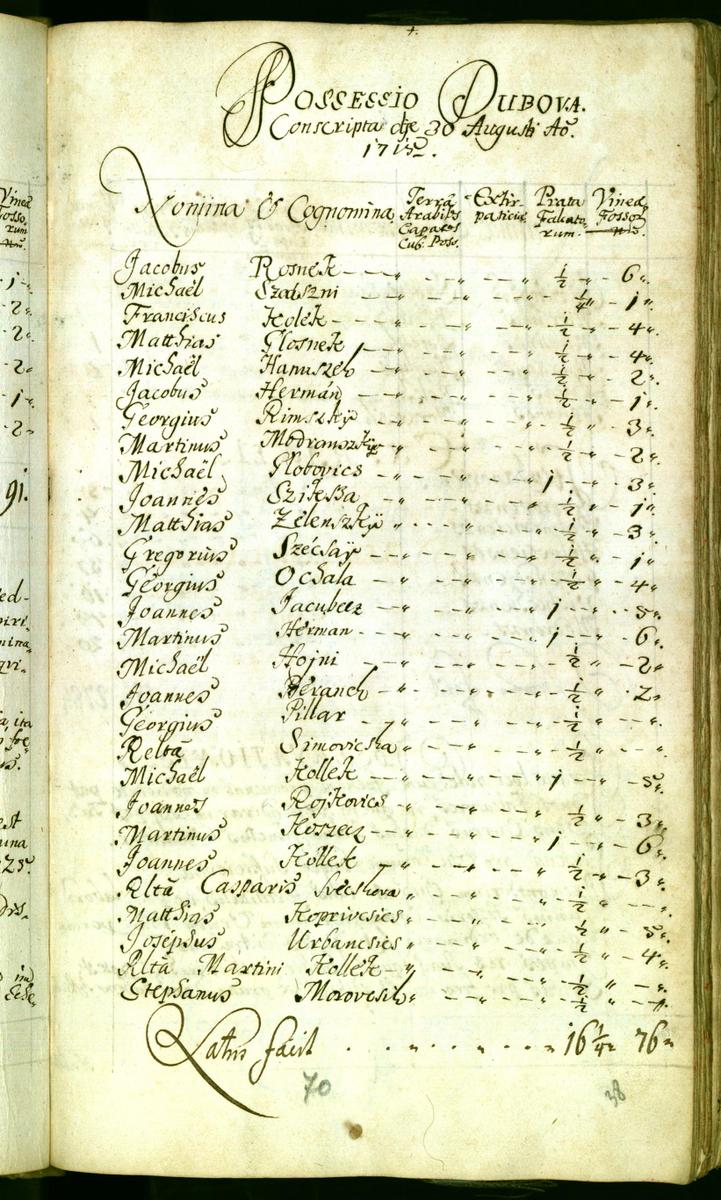 4.
POSSESSIO DUBOVA.
Conscripta die 30 Augusti Ao.
1715.
Nomina & Cognomina Terra Arabilis Capatos Cub. Poss. Extirpaticia Prata Falcatorum Vinea Fossorum
Jacobus Rosnek 1/2 6
Michaël Szabszni 1/4 1
Franciscus Kolek 1/2 4
Matthias Glosnek 1/2 4
Michaël Hanuszeh 1/2 2
Jacobus Hermán 1/2 1
Georgius Rimszkÿ 1/2 3
Martinus Modranszkÿ 1/2 2
Michaël Globovics 1 3
Joannes Szikszka 1/2 1
Matthias Zelenszkÿ 1/2 3
Gregorius Szécsaÿ 1/2 1
Georgius Ochala 1/2 4
Joannes Jacubecz 1 5
Martinus Herman 1 6
Michaël Hojni 1/2 2
Joannes Beranek 1/2 2
Georgius Pillar 1/2
Relta Simovicska 1/2
Michaël Kollek 1 5
Joannes Rojkovics 1/2 3
Martinus Koszecz 1 6
Joannes Kollek 1/2 3
Rlta Casparis Svecshova 1/2
Matthias Koprivcsics 1/2 5
Josephus Urbancsics 1/2 4
Rlta Martini Kollek 1/2
Stephanus Morovcsik 1/2
Latus facit 16 1/4 76
70
38